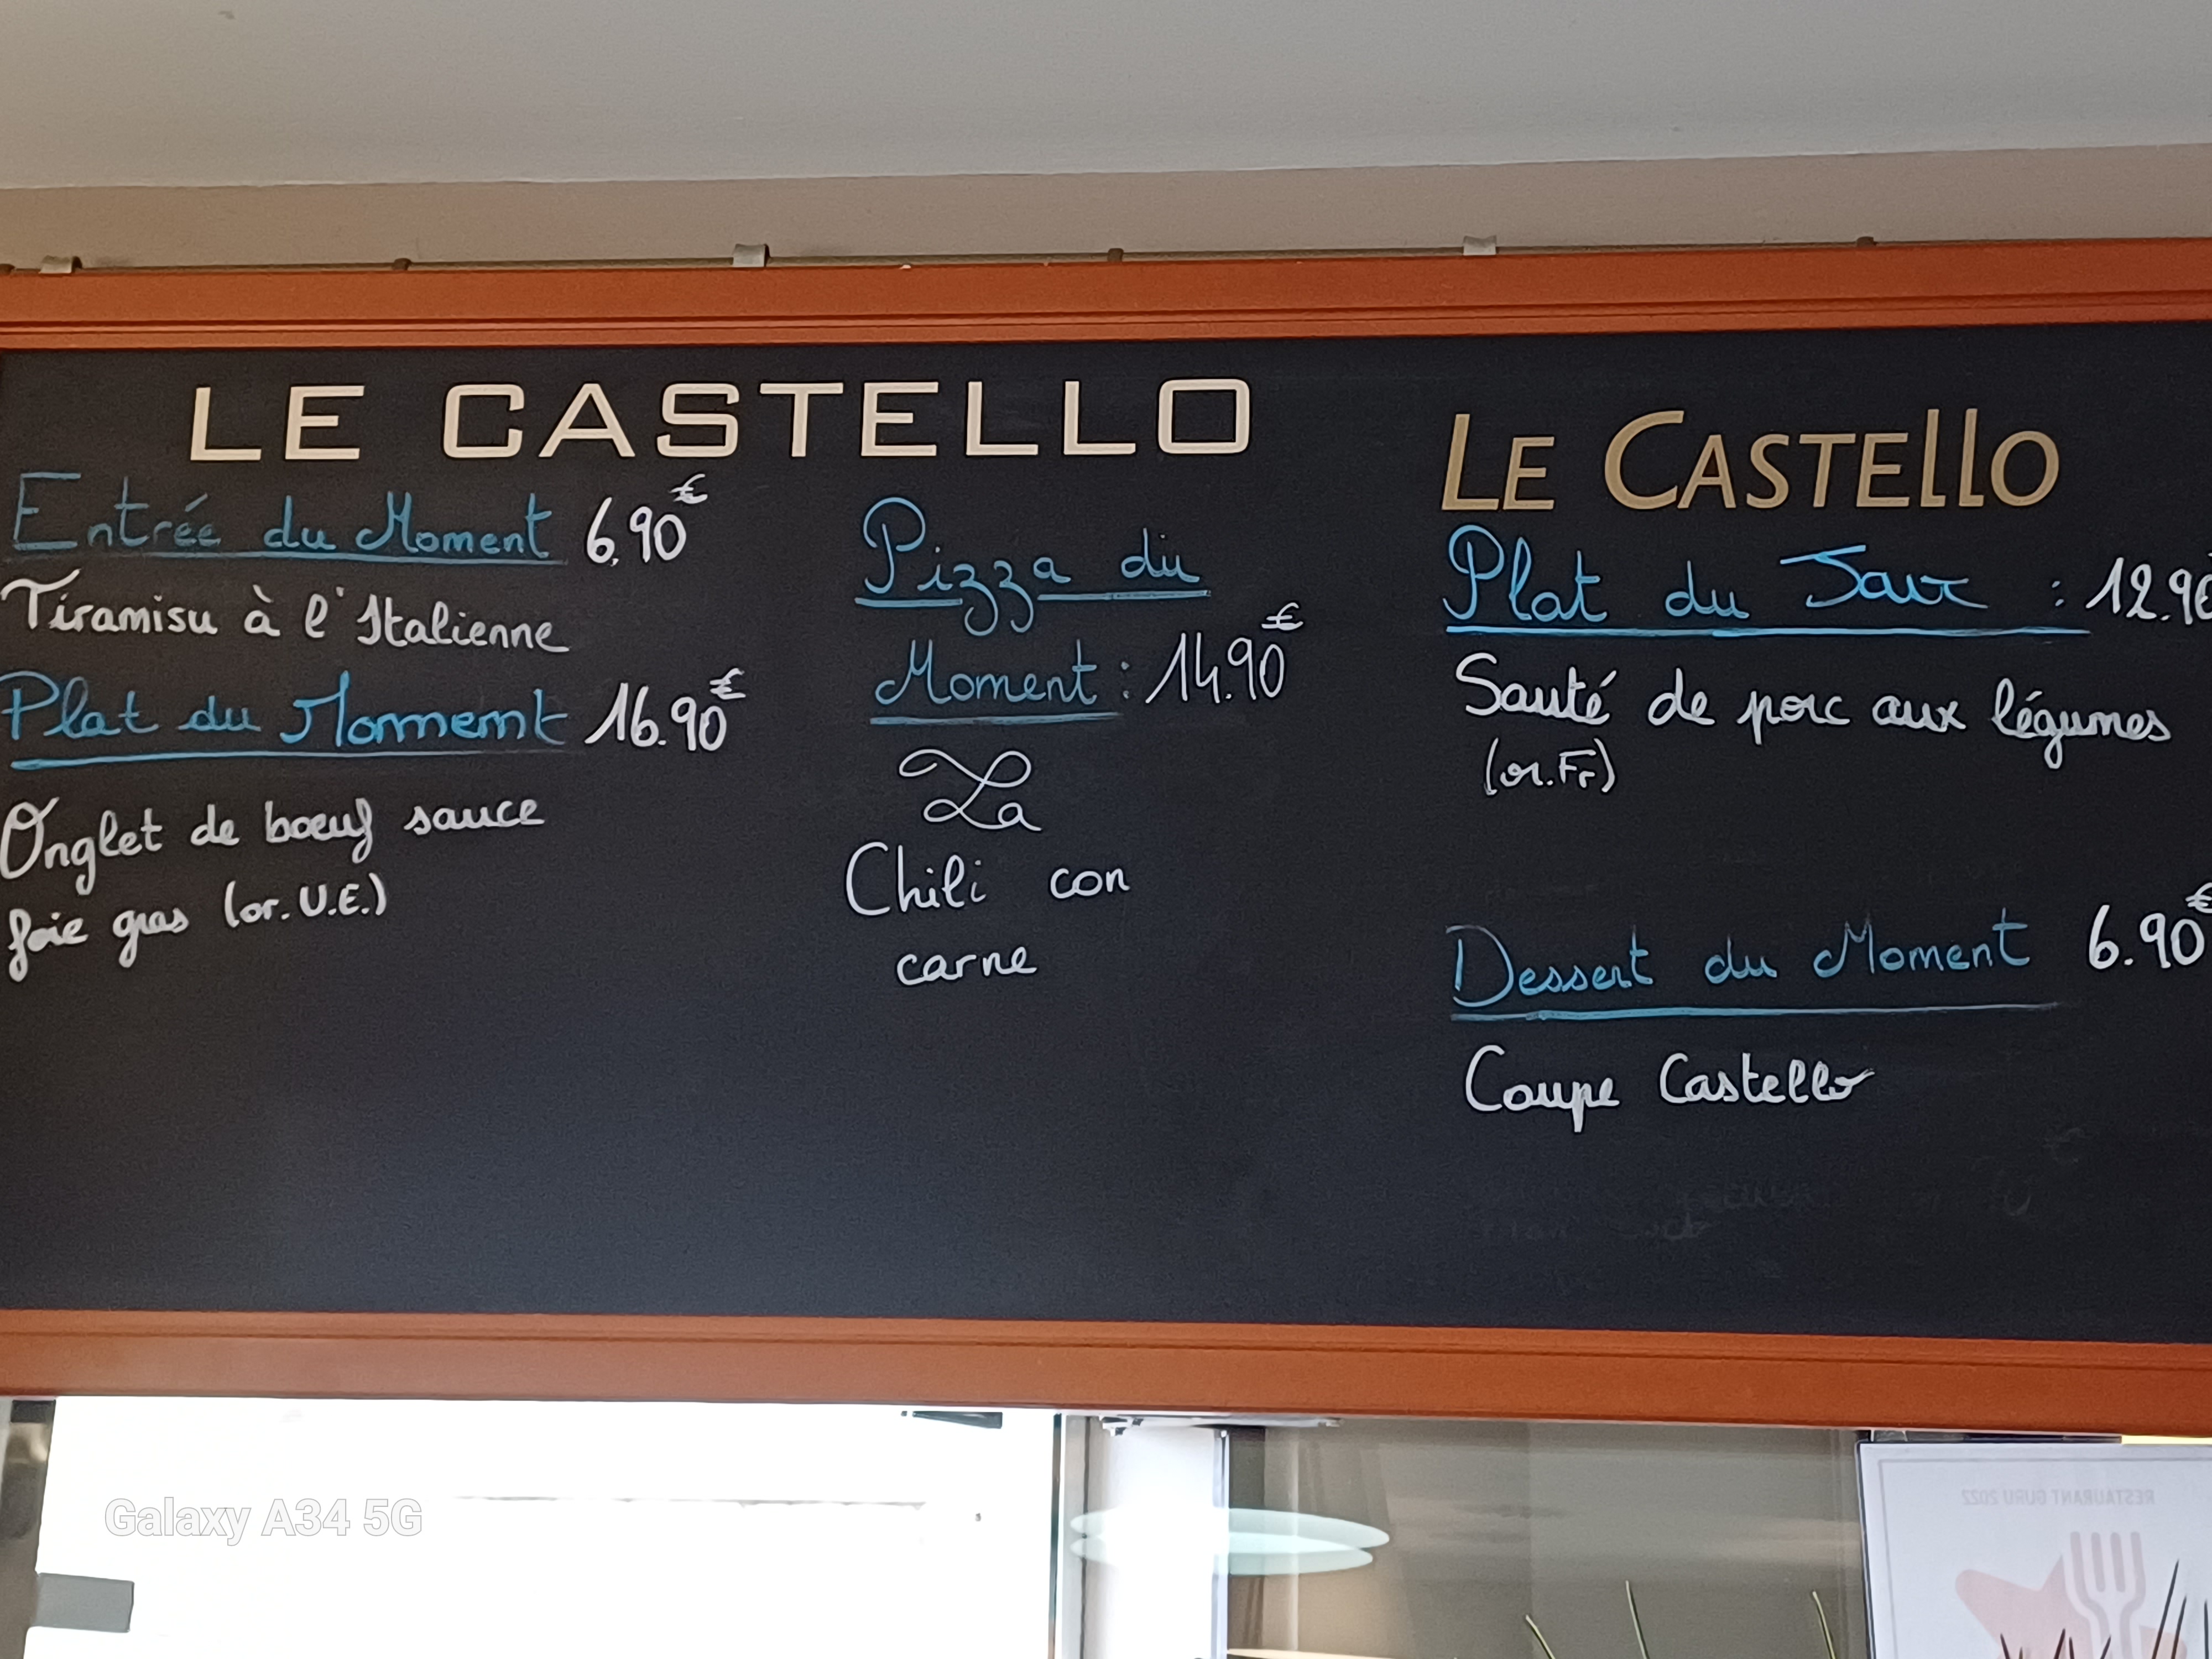 LE CASTELLO
Entrée du Moment 6.90€
Tiramisu à l'Italienne
Plat du Moment 16.90€
Onglet de bœuf sauce
foie gras (or. U.E.)
Pizza du
Moment : 14.90€
La
Chili con
carne
LE CASTELLO
Plat du Jour : 12.90
Sauté de porc aux légumes
(or. Fr)
Dessert du Moment 6.90€
Coupe Castello
Galaxy A34 5G
RESTAURANT GURU 2022